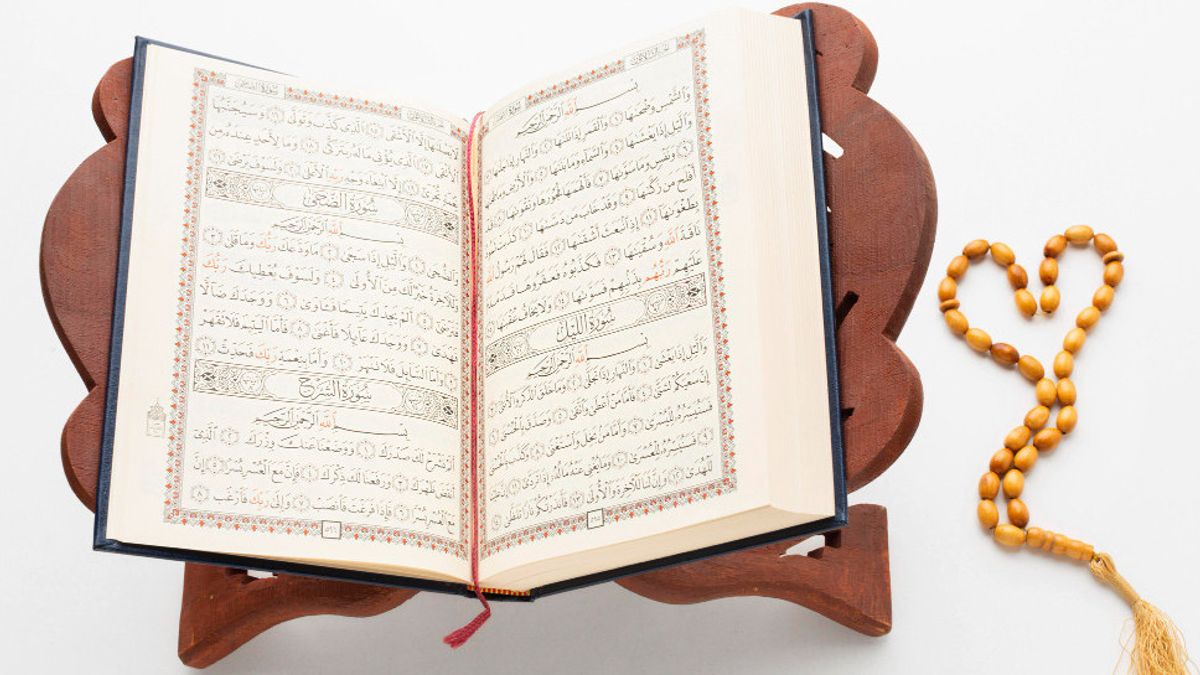 سورة الشمس
بِسْمِ ٱللَّهِ ٱلرَّحْمَٰنِ ٱلرَّحِيمِ
وَٱلشَّمْسِ وَضُحَىٰهَا ١ وَٱلْقَمَرِ إِذَا تَلَىٰهَا ٢ وَٱلنَّهَارِ إِذَا جَلَّىٰهَا ٣
وَٱلَّيْلِ إِذَا يَغْشَىٰهَا ٤ وَٱلسَّمَآءِ وَمَا بَنَىٰهَا ٥ وَٱلْأَرْضِ وَمَا طَحَىٰهَا
٦ وَنَفْسٍ وَمَا سَوَّىٰهَا ٧ فَأَلْهَمَهَا فُجُورَهَا وَتَقْوَىٰهَا ٨ قَدْ
أَفْلَحَ مَن زَكَّىٰهَا ٩ وَقَدْ خَابَ مَن دَسَّىٰهَا ١٠ كَذَّبَتْ ثَمُودُ
بِطَغْوَىٰهَآ ١١ إِذِ ٱنۢبَعَثَ أَشْقَىٰهَا ١٢ فَقَالَ لَهُمْ رَسُولُ ٱللَّهِ
نَاقَةَ ٱللَّهِ وَسُقْيَٰهَا ١٣ فَكَذَّبُوهُ فَعَقَرُوهَا فَدَمْدَمَ
عَلَيْهِمْ رَبُّهُم بِذَنۢبِهِمْ فَسَوَّىٰهَا ١٤ وَلَا يَخَافُ عُقْبَٰهَا ١٥
سُورَةُ اللَّيْلِ
بِسْمِ ٱللَّهِ ٱلرَّحْمَٰنِ ٱلرَّحِيمِ
وَٱلَّيْلِ إِذَا يَغْشَىٰ ١ وَٱلنَّهَارِ إِذَا تَجَلَّىٰ ٢ وَمَا خَلَقَ ٱلذَّكَرَ وَٱلْأُنثَىٰٓ ٣
إِنَّ سَعْيَكُمْ لَشَتَّىٰ ٤ فَأَمَّا مَنْ أَعْطَىٰ وَٱتَّقَىٰ ٥ وَصَدَّقَ بِٱلْحُسْنَىٰ ٦
فَسَنُيَسِّرُهُۥ لِلْيُسْرَىٰ ٧ وَأَمَّا مَنۢ بَخِلَ وَٱسْتَغْنَىٰ ٨ وَكَذَّبَ بِٱلْحُسْنَىٰ
٩ فَسَنُيَسِّرُهُۥ لِلْعُسْرَىٰ ١٠ وَمَا يُغْنِى عَنْهُ مَالُهُۥٓ إِذَا تَرَدَّىٰٓ ١١ إِنَّ عَلَيْنَا
لَلْهُدَىٰ ١٢ وَإِنَّ لَنَا لَلْءَاخِرَةَ وَٱلْأُولَىٰ ١٣ فَأَنذَرْتُكُمْ نَارًا تَلَظَّىٰ ١٤
٥٩٥
سورة الضحى
لَا يَصْلَىٰهَآ إِلَّا ٱلْأَشْقَى ١٥ ٱلَّذِى كَذَّبَ وَتَوَلَّىٰ ١٦ وَسَيُجَنَّبُهَا
ٱلْأَتْقَى ١٧ ٱلَّذِى يُؤْتِى مَالَهُۥ يَتَزَكَّىٰ ١٨ وَمَا لِأَحَدٍ عِندَهُۥ مِن
نِّعْمَةٍ تُجْزَىٰٓ ١٩ إِلَّا ٱبْتِغَآءَ وَجْهِ رَبِّهِ ٱلْأَعْلَىٰ ٢٠ وَلَسَوْفَ يَرْضَىٰ ٢١
سُورَةُ الضُّحَىٰ
بِسْمِ ٱللَّهِ ٱلرَّحْمَٰنِ ٱلرَّحِيمِ
وَٱلضُّحَىٰ ١ وَٱلَّيْلِ إِذَا سَجَىٰ ٢ مَا وَدَّعَكَ رَبُّكَ وَمَا قَلَىٰ ٣
وَلَلْءَاخِرَةُ خَيْرٌ لَّكَ مِنَ ٱلْأُولَىٰ ٤ وَلَسَوْفَ يُعْطِيكَ رَبُّكَ
فَتَرْضَىٰٓ ٥ أَلَمْ يَجِدْكَ يَتِيمًا فَـَٔاوَىٰ ٦ وَوَجَدَكَ ضَآلًّا
فَهَدَىٰ ٧ وَوَجَدَكَ عَآئِلًا فَأَغْنَىٰ ٨ فَأَمَّا ٱلْيَتِيمَ فَلَا تَقْهَرْ
٩ وَأَمَّا ٱلسَّآئِلَ فَلَا تَنْهَرْ ١٠ وَأَمَّا بِنِعْمَةِ رَبِّكَ فَحَدِّثْ ١١
سُورَةُ الشَّرْحِ
بِسْمِ ٱللَّهِ ٱلرَّحْمَٰنِ ٱلرَّحِيمِ
أَلَمْ نَشْرَحْ لَكَ صَدْرَكَ ١ وَوَضَعْنَا عَنكَ وِزْرَكَ ٢ ٱلَّذِىٓ
أَنقَضَ ظَهْرَكَ ٣ وَرَفَعْنَا لَكَ ذِكْرَكَ ٤ فَإِنَّ مَعَ ٱلْعُسْرِ يُسْرًا ٥ إِنَّ
مَعَ ٱلْعُسْرِ يُسْرًا ٦ فَإِذَا فَرَغْتَ فَٱنصَبْ ٧ وَإِلَىٰ رَبِّكَ فَٱرْغَب ٨
٥٩٦